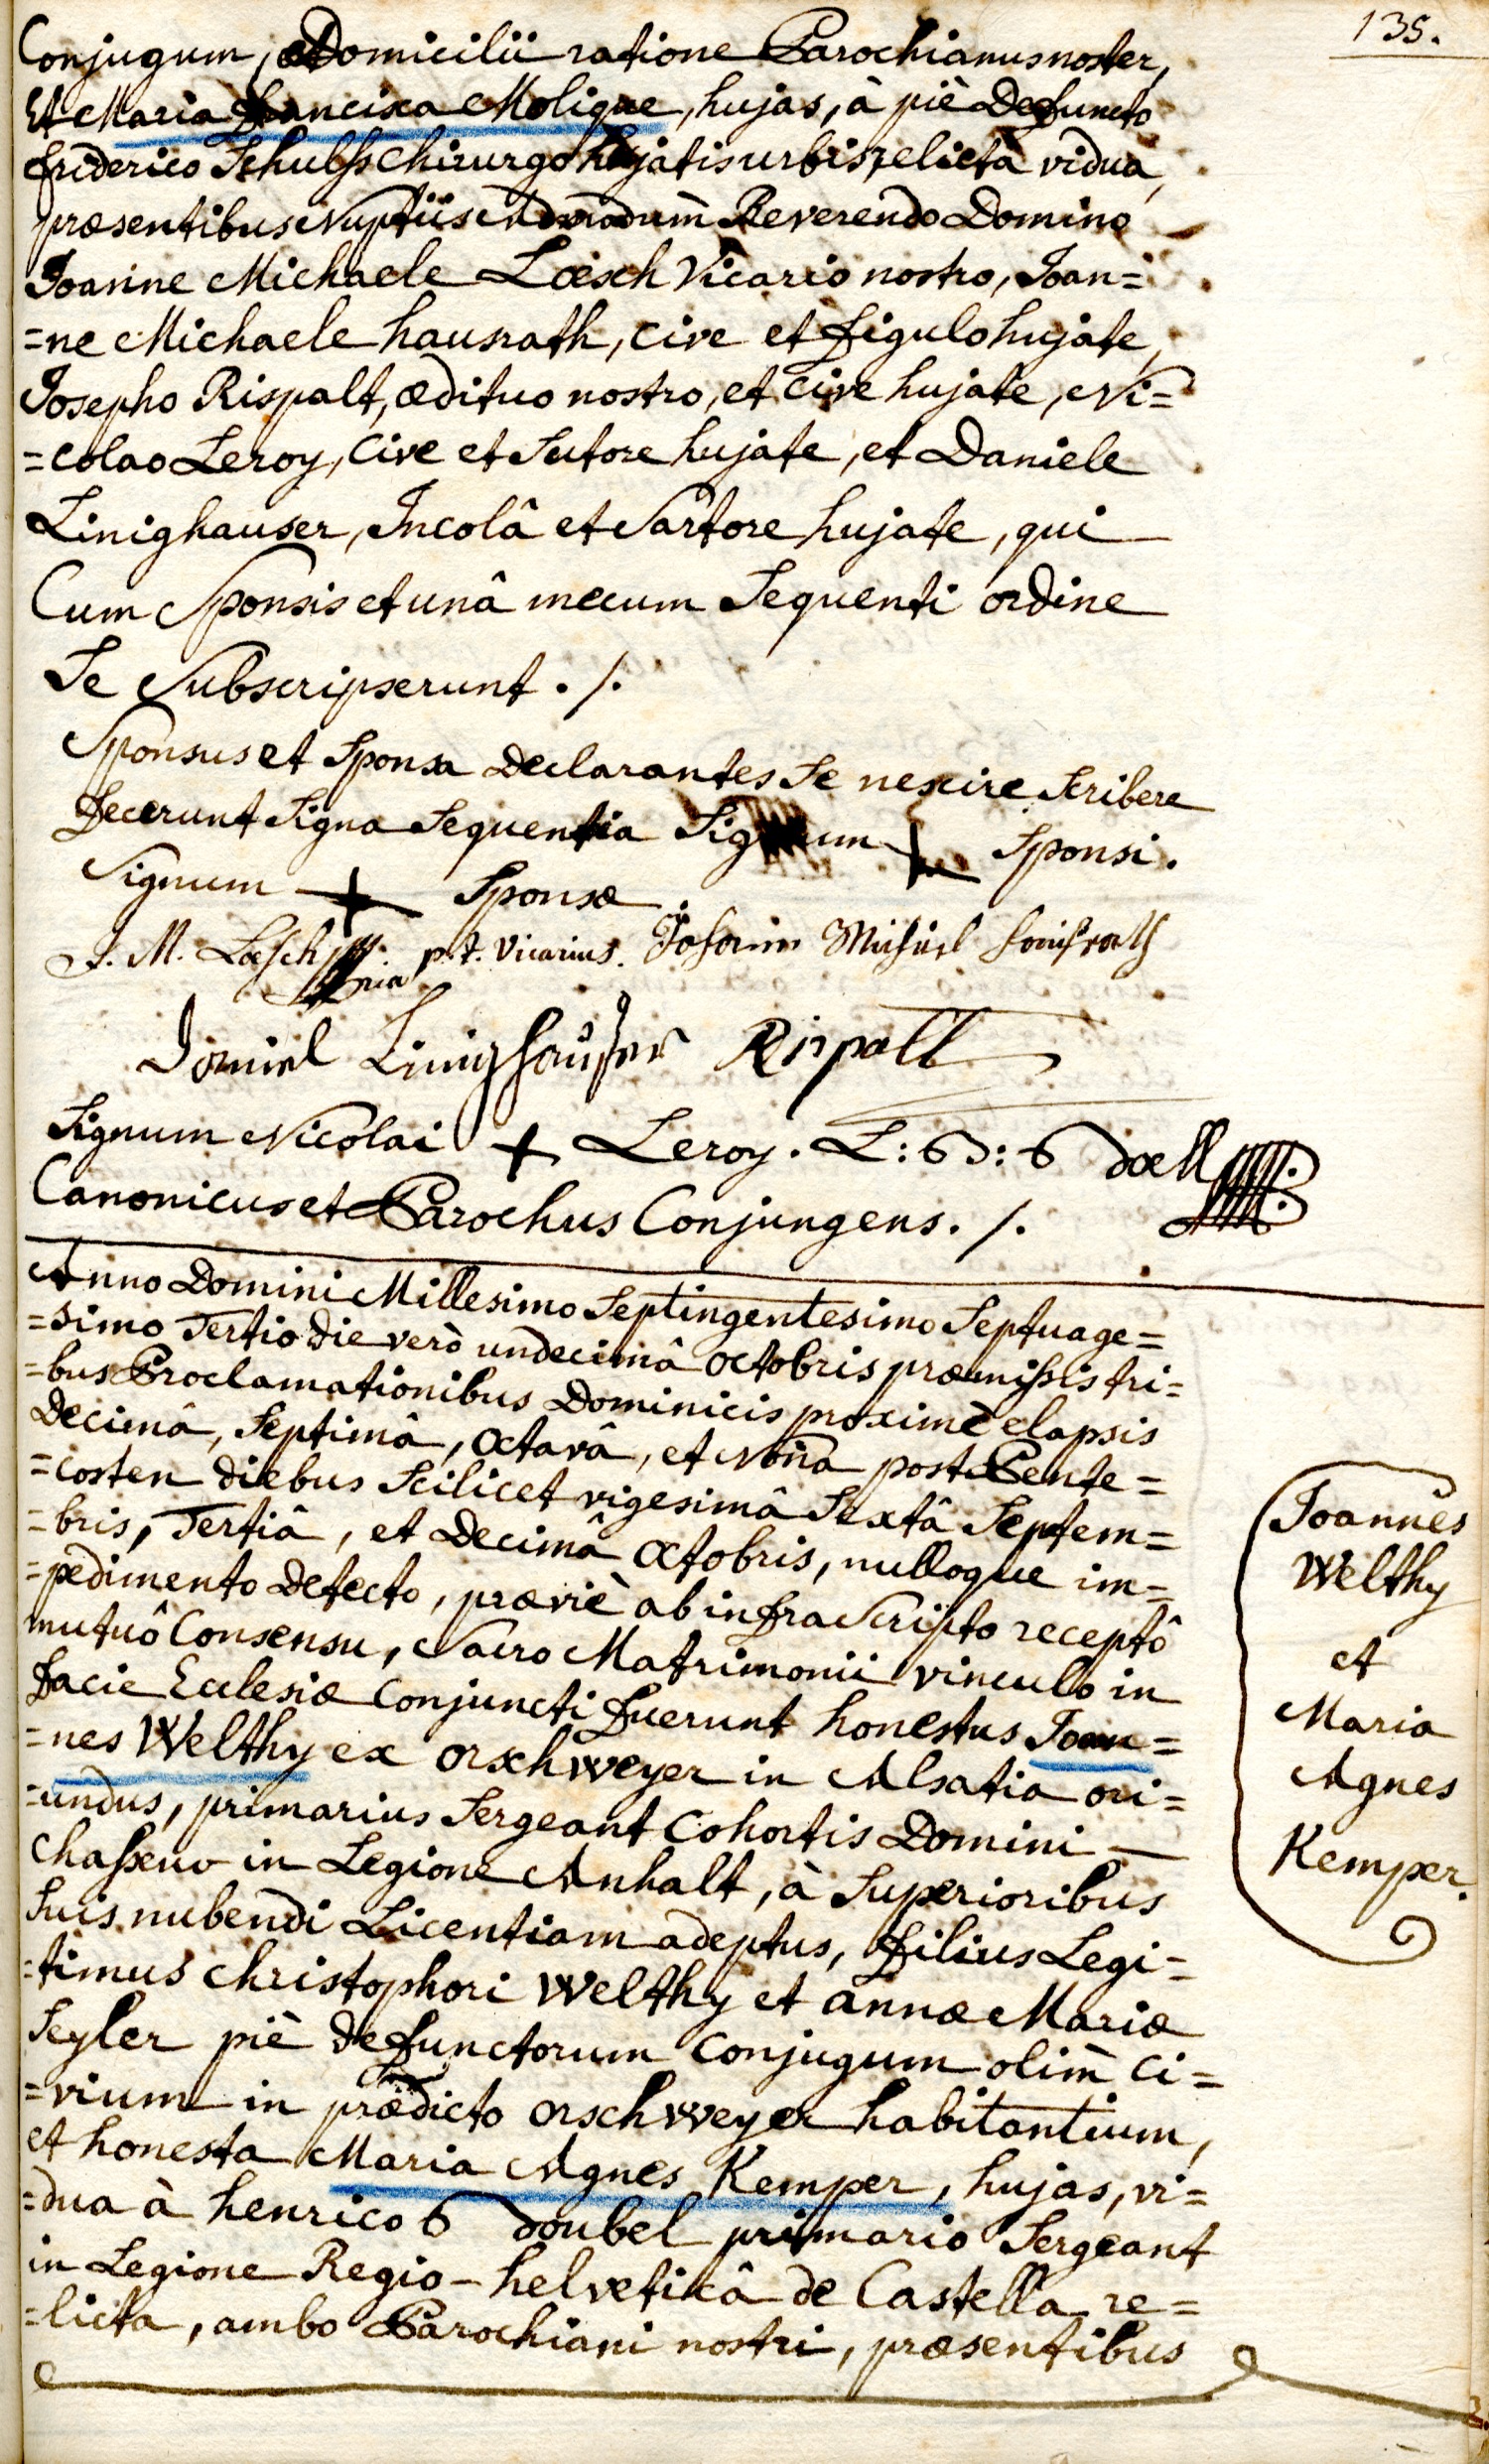 135.
Conjugum, et Domicilii ratione Parochianus noster,
Et Maria Francisca Molique, hujas, à piè Defuncto
friderico Schulss Chirurgo hujatis urbis relicta vidua,
præsentibus Nuptiis Admodum Reverendo Domino
Joanne Michaele Lœsch Vicario nostro, Joan=
=ne Michaele hausrath, cive et figulo hujate,
Josepho Rispalt, ædituo nostro, et cive hujate, Ni=
=colao Leroy, Cive et Sutore hujate, et Daniele
Linighauser, Incolâ et Sartore hujate, qui
Cum Sponsis et unâ mecum Sequenti ordine
Se Subscripserunt ./.
Sponsus et Sponsa Declarantes Se nescire Scribere
fecerunt Signa Sequentia Signum + Sponsi.
Signum + Sponsæ.
J. M. Lœsch p.t. Vicarius. Johannes Michael Hausrath
Daniel Linighauser Rispalt
Signum Nicolai + Leroy. L: B: B dœll
Canonicus et Parochus Conjungens ./.
Anno Domini Millesimo Septingentesimo Septuage=
=simo Tertio die verò undecimâ octobris præmissis tri=
=bus Proclamationibus Dominicis proximè elapsis
Decimâ, Septimâ, octavâ, et Nonâ post Pente=
=costen diebus Scilicet vigesimâ Sextâ Septem=
=bris, Tertiâ, et Decimâ octobris, nulloque im=
=pedimento detecto, præviè ab infra Scripto receptô
mutuô Consensu, Sacro Matrimonii vinculo in
facie Ecclesiæ Conjuncti fuerunt honestus Joan=
=nes Welthy ex orschweyer in Alsatia ori=
=undus, primarius Sergeant Cohortis Domini
Chasseno in Legione Anhalt, à Superioribus
Suis nubendi Licentiam adeptus, filius Legi=
=timus christophori Welthy et annæ Mariæ
Seyler piè defunctorum Conjugum olim Ci=
=vium in prædicto orschweyer habitantium,
et honesta Maria Agnes Kemper, hujas, vi=
=dua à henrico B doubel primario Sergeant
in Legione Regio-helveticâ de Castella re=
=licta, ambo Parochiani nostri, præsentibus
Joannes
Welthy
et
Maria
Agnes
Kemper.